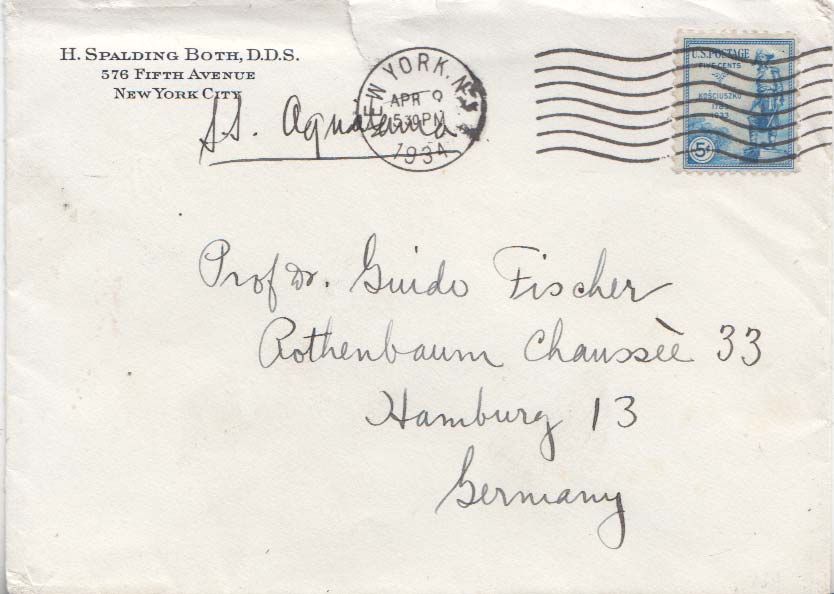 H. SPALDING BOTH, D.D.S.
576 FIFTH AVENUE
NEW YORK CITY
S.S. Aquitania
NEW YORK, N.Y.
APR 9
530PM
1934
U.S. POSTAGE
FIVE CENTS
KOSCIUSZKO
1783
1933
5¢
Prof Dr. Guido Fischer
Rothenbaum Chaussèe 33
Hamburg 13
Germany